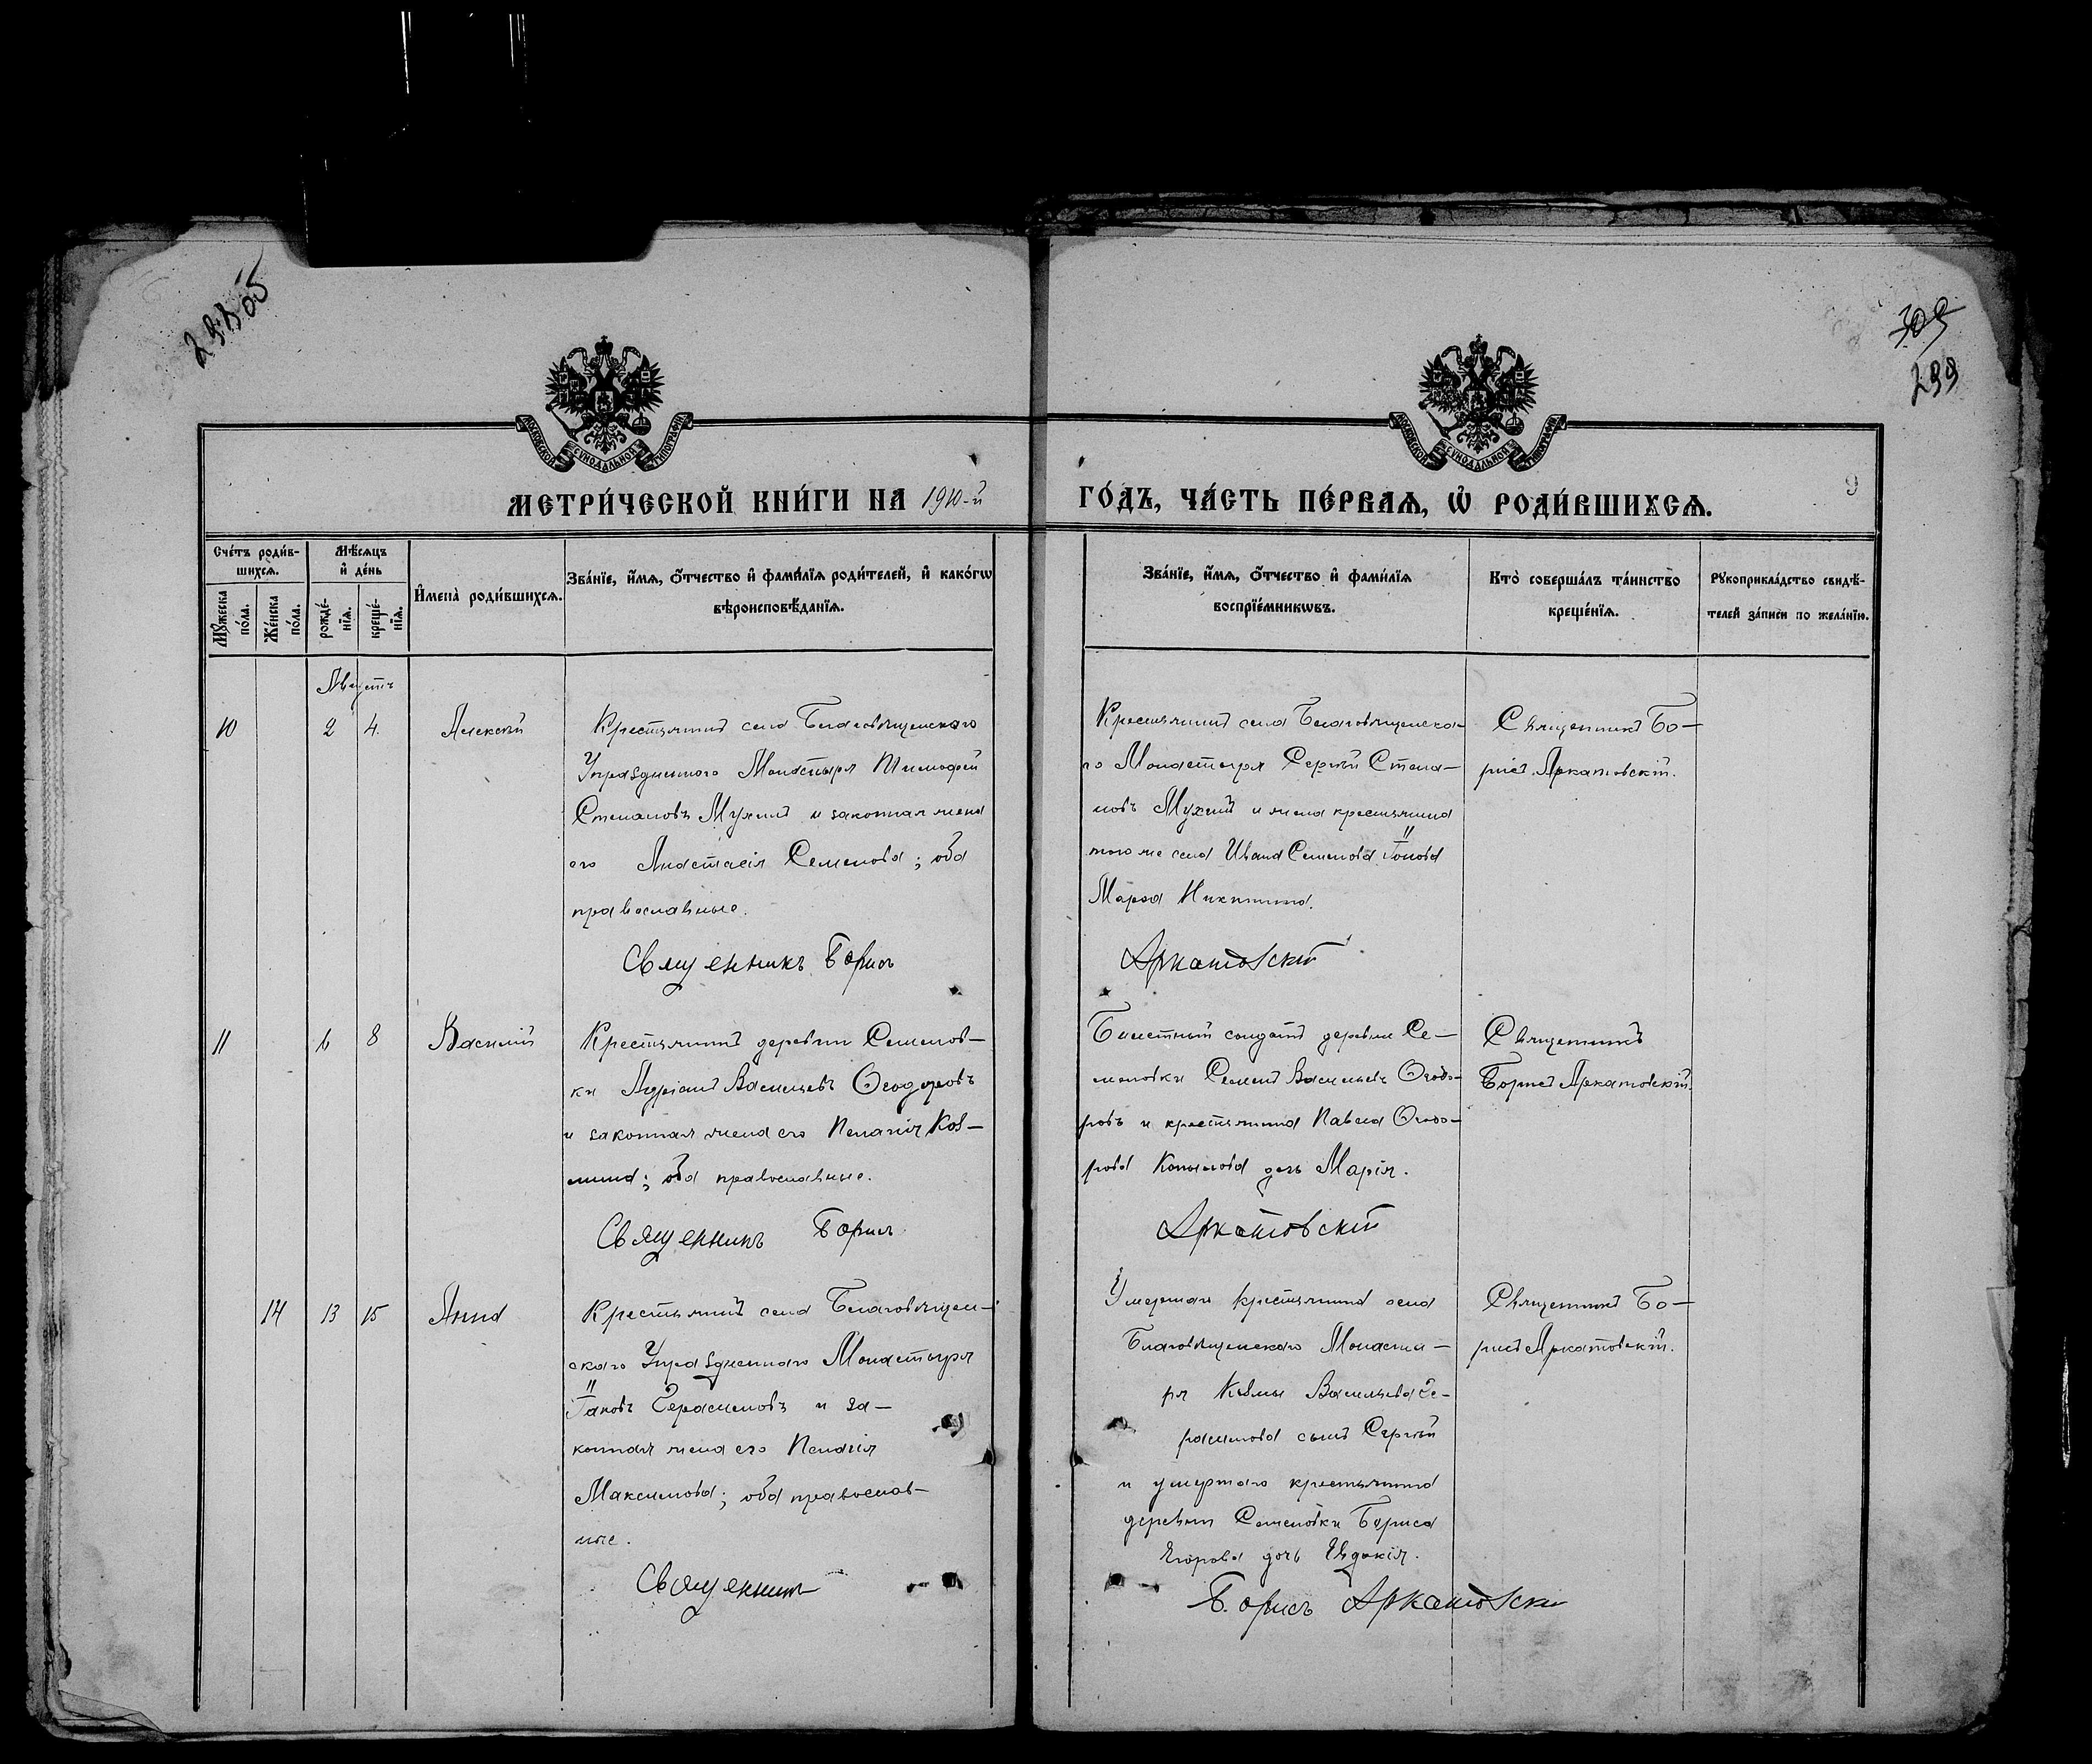 299 об
309
299
МОСКОВСКОЙ СѴНОДАЛЬНОЙ ТИПОГРАФІИ
МОСКОВСКОЙ СѴНОДАЛЬНОЙ ТИПОГРАФІИ
МЕТРИ́ЧЕСКОЙ КНИ́ГИ НА 1910-й
ГО́ДЪ, ЧА́СТЬ ПЕ́РВАѦ, Ѡ҆ РОДИ́ВШИХСѦ.
9
Сче́тъ роди́в-
шихсѧ.
Мꙋ́жеска по́ла.
Же́нска по́ла.
Мѣ́сѧцъ
и҆ де́нь
рожде́-
нїѧ.
креще́-
нїѧ.
И҆мена̀ роди́вшихсѧ.
Зва́нїе, и҆́мѧ, ѻ҆́тчество и҆ фами́лїѧ роди́телей, и҆ како́гѡ
вѣроисповѣ́данїѧ.
Зва́нїе, и҆́мѧ, ѻ҆́тчество и҆ фами́лїѧ
воспрїе́мникѡвъ.
Кто̀ соверша́лъ та́инство
креще́нїѧ.
Рꙋкоприкла́дство свидѣ́-
телей за́писи по жела́нїю.
Августъ
10 2 4. Алексѣй
Крестьянинъ села Благовѣщенскаго
Упраздненнаго Монастыря Тимофей
Степановъ Мухинъ и законная жена
его Анастасія Семенова; оба
православные.
Священникъ Борисъ
Крестьянинъ села Благовѣщенска-
го Монастыря Сергѣй Степа-
новъ Мухинъ и жена крестьянина
того же села Ивана Семенова
Марфа Никитина.
Аркатовскій
Священникъ Бо-
рисъ Аркатовскій.
11 6 8 Василій
Крестьянинъ деревни Семенов-
ки Андріанъ Васильевъ Ѳеодоровъ
и законная жена его Пелагія Коз-
мина; оба православные.
Священникъ Борисъ
Билетный солдатъ деревни Се-
меновки Семенъ Васильевъ Ѳеодо-
ровъ и крестьянина Павла Ѳеодо-
рова Копылова дочь Марія.
Аркатовскій
Священникъ
Борисъ Аркатовскій.
14 13 15 Анна
Крестьянинъ села Благовѣщен-
скаго Упраздненнаго Монастыря
Іаковъ Герасимовъ и за-
конная жена его Пелагія
Максимова; оба православ-
ные.
Священникъ
Умершаго крестьянина села
Благовѣщенскаго Монасты-
ря Козмы Васильева Ге-
расимова сынъ Сергѣй
и умершаго крестьянина
деревни Семеновки Бориса
Егорова дочь Евдокія.
Борисъ Аркатовскій
Священникъ Бо-
рисъ Аркатовскій.